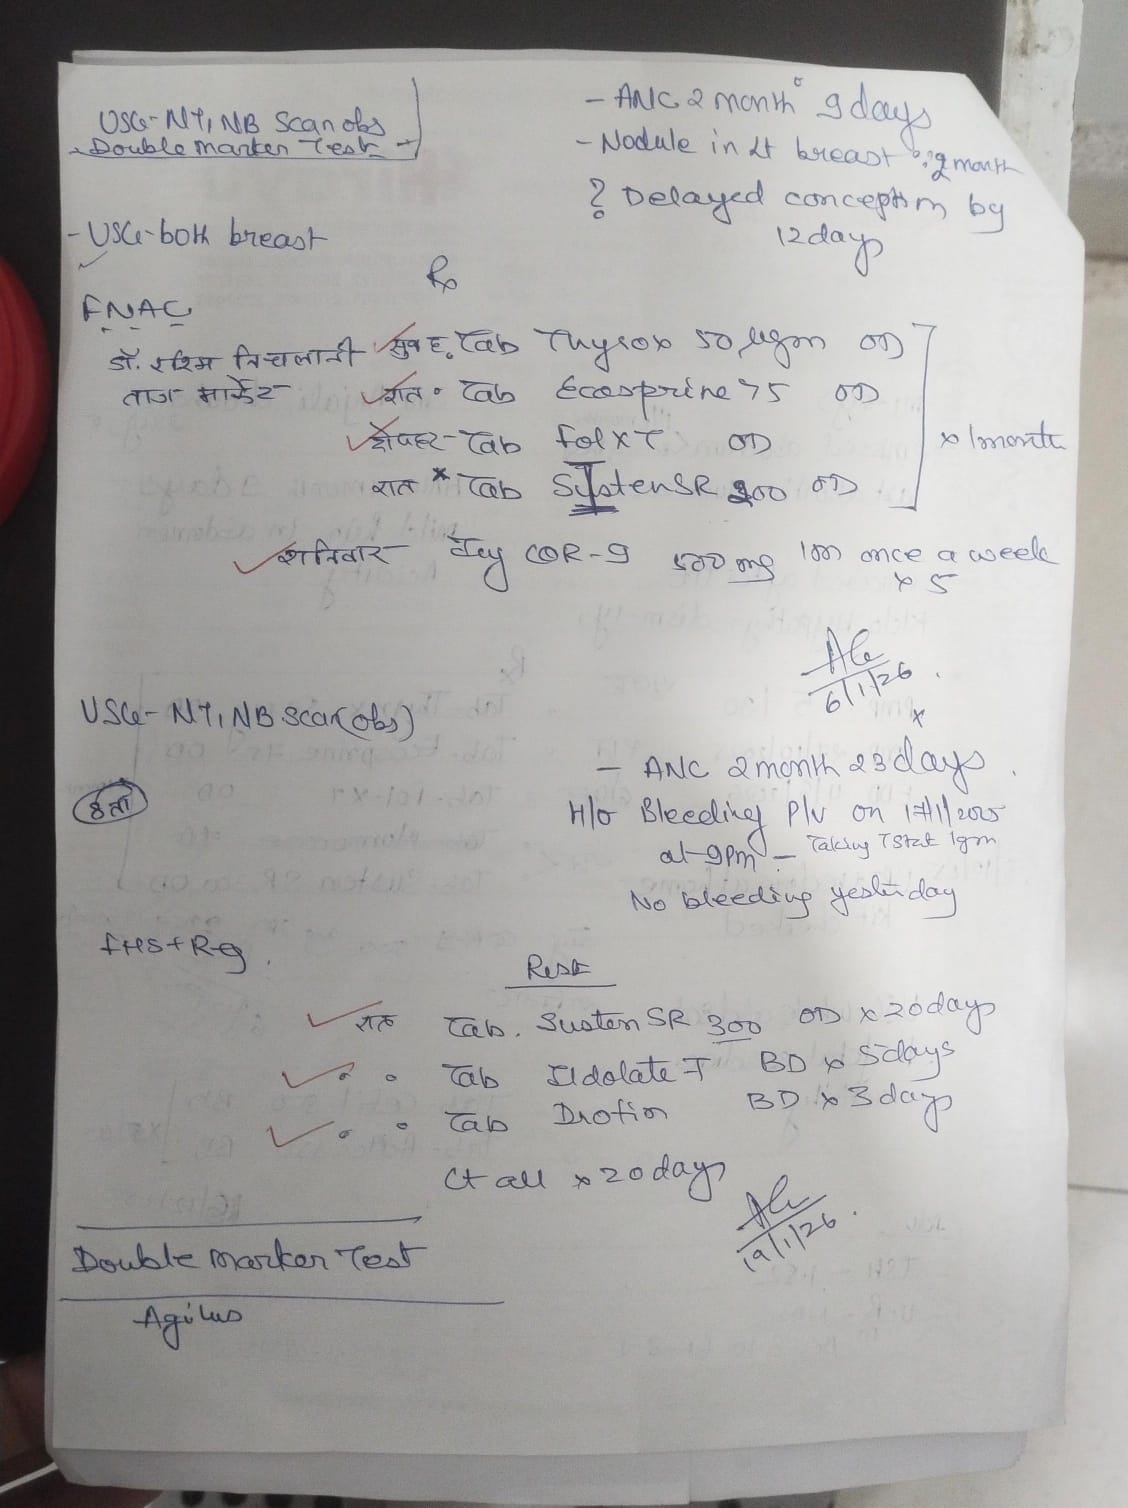 USG- NT, NB Scan obs
- Double marker Test -
- ANC 2 month 9 days
- Nodule in Lt breast 2 month
? Delayed conception by
12 days
- USG- both breast
Rx
FNAC
डॉ. रश्मि त्रिचलानी
ताज मार्केट
सुबह. Tab Thyrox 50 ugm OD
रात. Tab Ecosprine 75 OD
दोपहर- Tab Fol X T OD
रात x Tab Susten SR 200 OD
x 1 month
शनिवार COR-9 500 mg im once a week
x 5
6/1/26
USG- NT, NB Scan (obs)
- ANC 2 month 23 days.
H/o Bleeding P/v on 17/1/2025
at 9pm - Taking T Stat 1gm
No bleeding yesterday
FHS + Reg.
Rest
रात Tab. Susten SR 300 OD x 20 days
Tab BD x 5 days
Tab Drotin BD x 3 days
Ct all x 20 days
19/1/26
Double Marker Test
Agilus